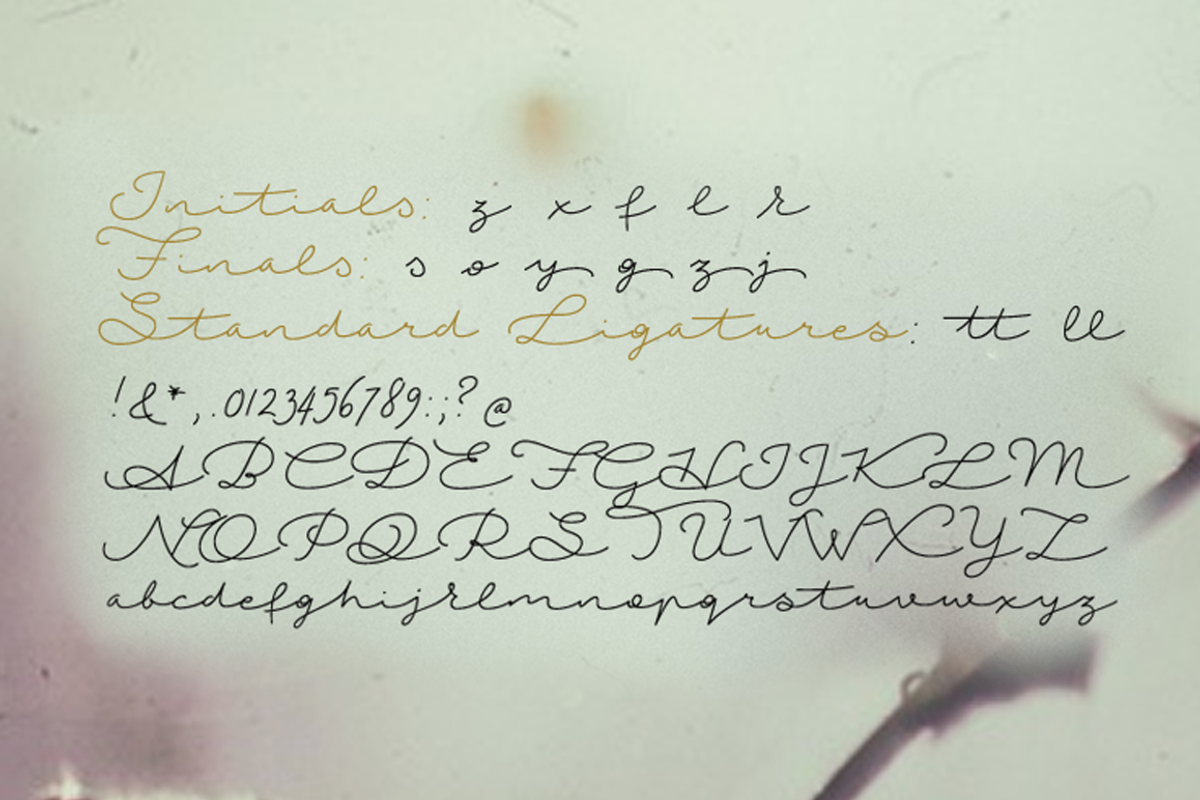 Initials: z x f l r
Finals: s o y g z j
Standard Ligatures: tt ll
!&*,.0123456789:;?@
ABCDEFGHIJKLM
NOPQRSTUVWXYZ
abcdefghijrlmnopqrstuvwxyz